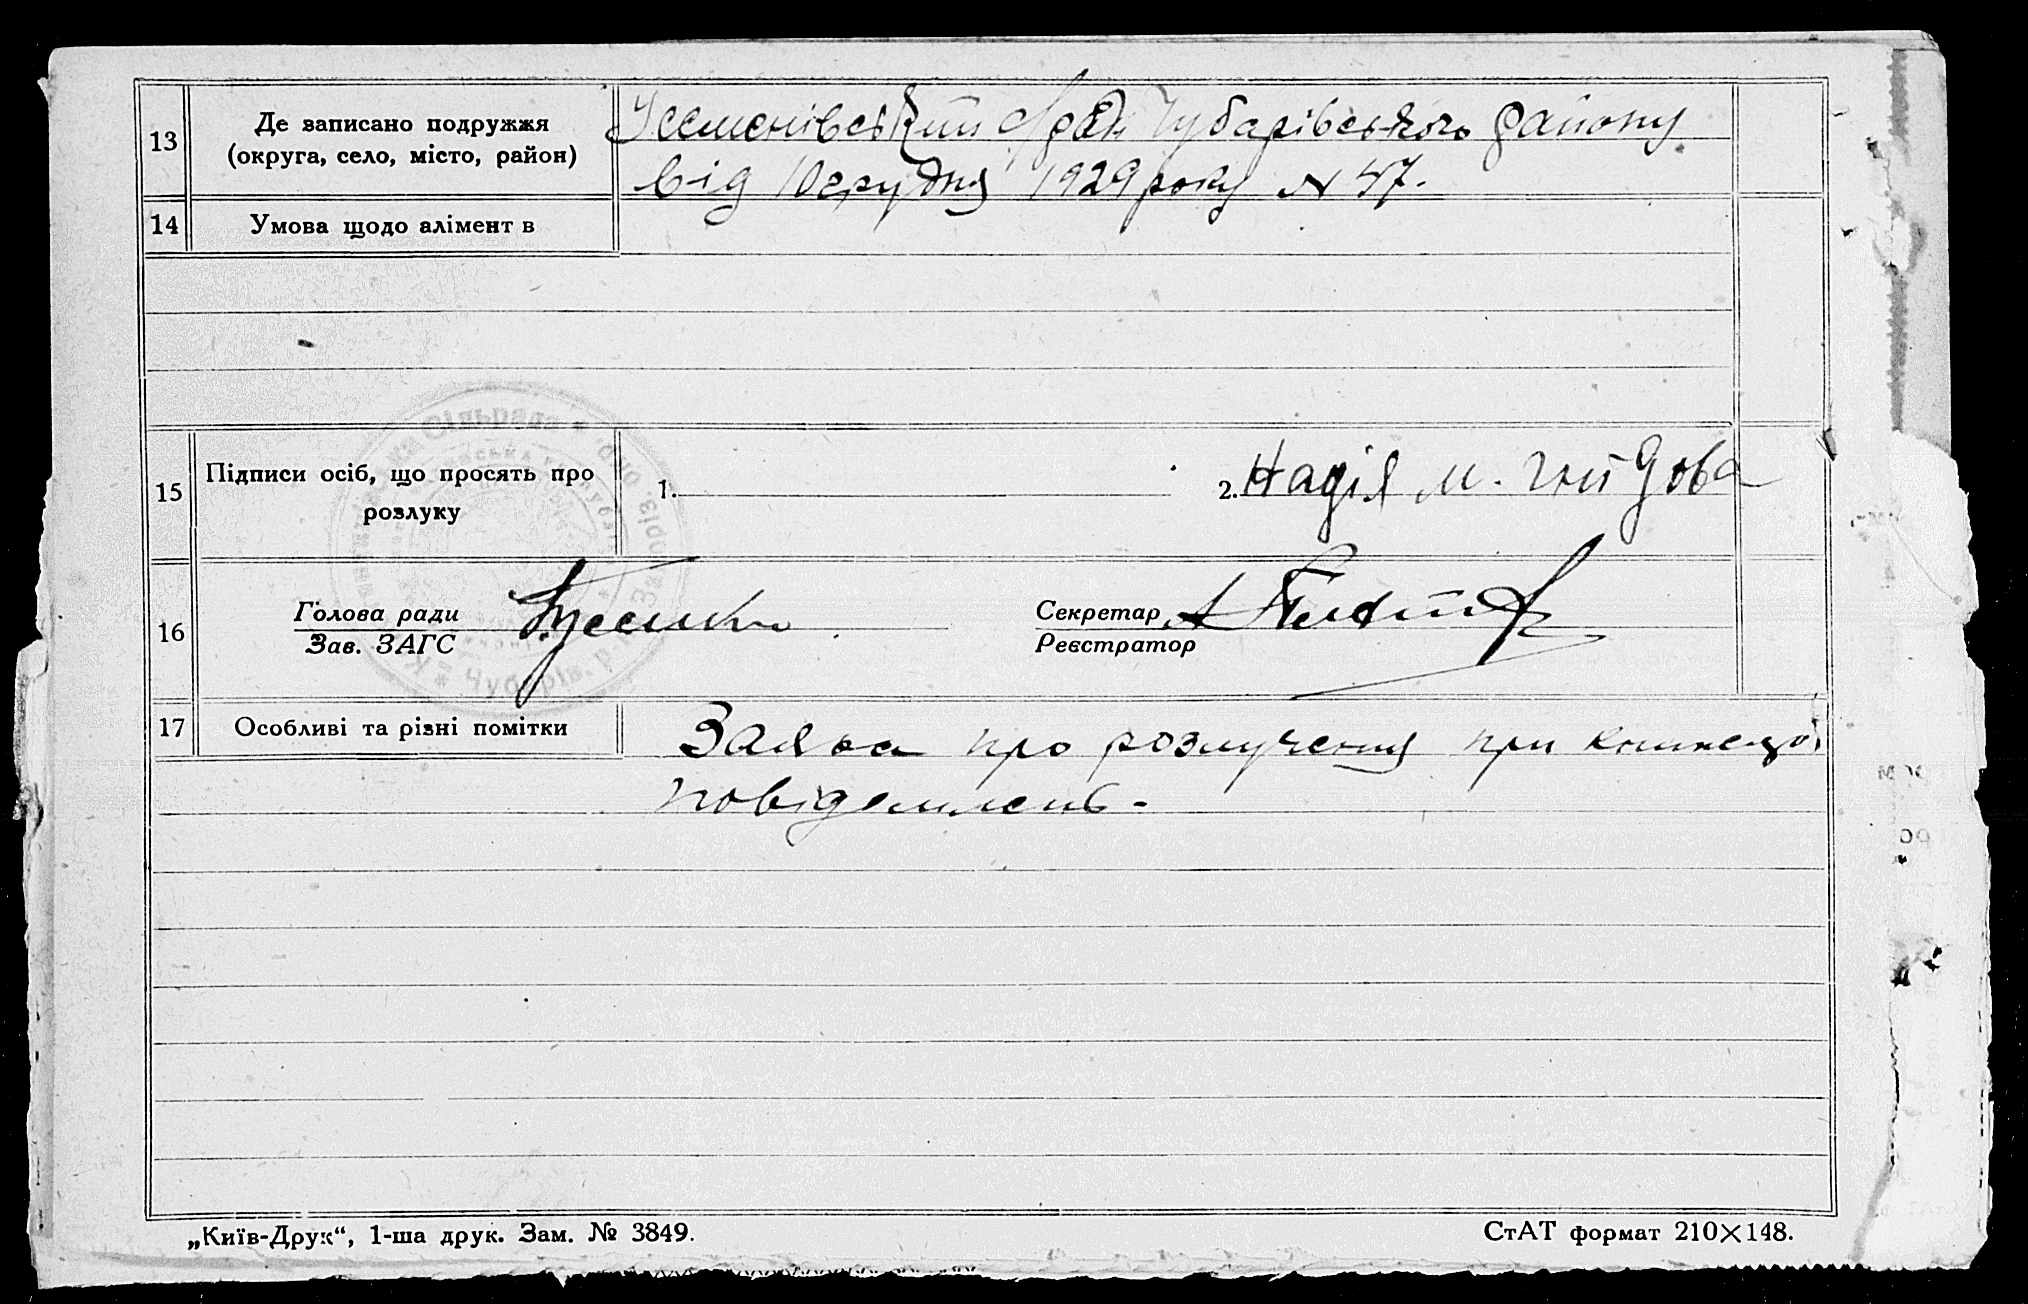 13
Де записано подружжя
(округа, село, місто, район)
Чубарівського району
від 10 грудня 1929 року N 47.
14
Умова щодо алімент в
15
Підписи осіб, що просять про
розлуку
1.
2. Надія М. Гнидова
16
Голова ради
Зав. ЗАГС
Секретар
Реєстратор
17
Особливі та різні помітки
Заява про розлучення при книжеці
повідомлень.
„Київ-Друк“, 1-ша друк. Зам. № 3849.
СтАТ формат 210×148.